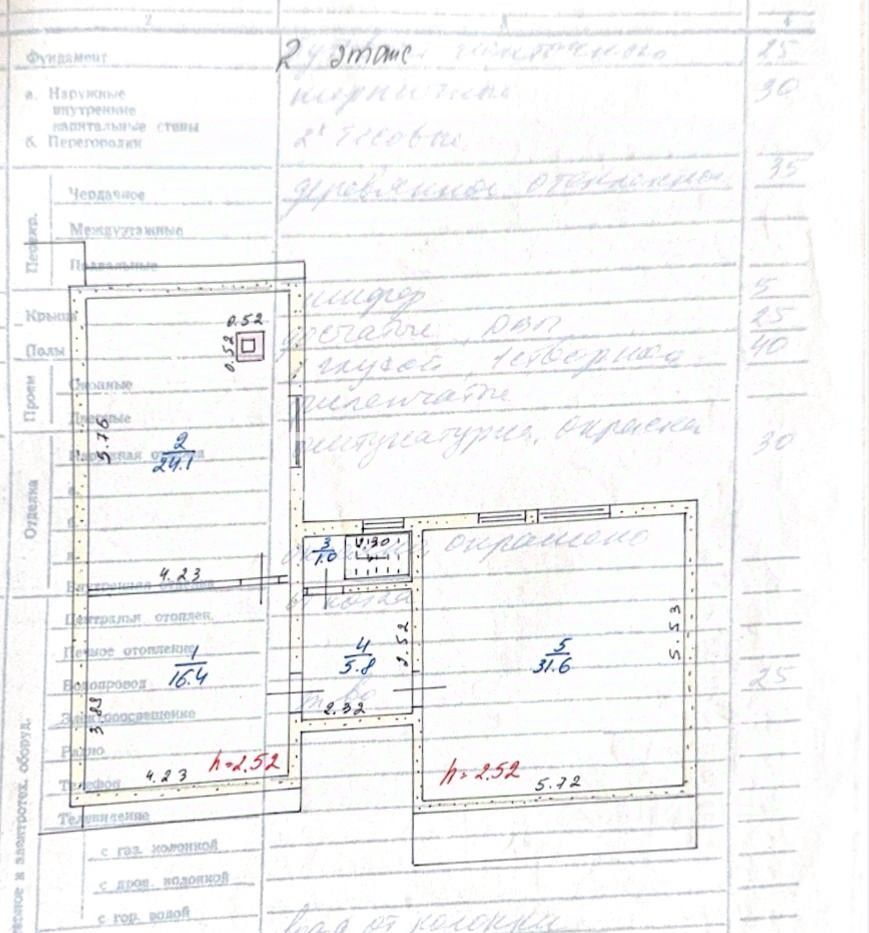 2 3 4
Фундамент 2 этаж 25
а. Наружные 30
внутренние
капитальные стены
б. Перегородки тесовые
Чердачное деревянное отепленное 35
Перекр.
Междуэтажные
Подвальные
Крыша шифер 5
Полы дощатые, ДВП 25
Проем
Оконные 1 глухой, 1 створный 40
Дверные филенчатые
Отделка
Наружная отделка штукатурка, окраска 30
а.
б.
в. окрашено
Внутренняя отделка
Централья отоплен. от котла
Печное отопление
Водопровод 25
Электроосвещение
Радио
Телефон
Телевидение
электротех. оборуд.
с газ. колонкой
с дров. колонкой
с гор. водой вода от колонки
0.52
0.52
5.76
2
24.1
3
1.0
4.23
1
16.4
4
5.8
2.52
5
31.6
5.53
3.88
2.32
4.23
h=2.52
h=2.52
5.72